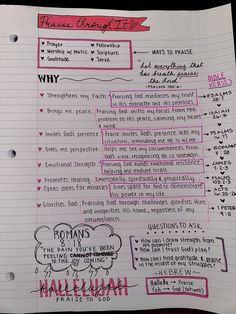 Praise through It
♥ Prayer ♥ Fellowship
♥ Worship w/ Music ♥ Scripture
♥ Gratitude ♥ Serve
WAYS TO PRAISE
Let everything that
has breath praise
the Lord
- PSALMS 150:6 -
WHY
BIBLE
VERSES
♥ Strengthens my Faith → Praising God reinforces my trust
in His character and His promises
PSALMS
28:7
♥ Brings me peace → Praising God shifts my focus from the
problem to His calm, even in the
ISAIAH
26:3
♥ Invites God's presence → Praise invites God's presence into my
situation, reminding me He is w/ me
PSALMS
♥ Gives me perspective → Helps me see my circumstances from
God's view, recognizing He is sovereign
ROMANS
♥ Emotional Strength → Praising God builds emotional resilience
helping me endure trials
JAMES
1:2-3
♥ Promotes Healing → Emotionally, Spiritually & physically
PSALMS
♥ Opens doors for miracles → Gives space for God to demonstrate
His power in my life
ACTS
16:25-26
♥ Glorifies God → Praising God through challenges glorifies Him
and magnifies His name, regardless of my
circumstances
1 PETER
4:8
ROMANS
8:18
"THE PAIN YOU'VE BEEN
FEELING CANNOT COMPARE
TO THE JOY COMING"
QUESTIONS TO ASK
♥ How can I draw strength from His
promises?
♥ How can I praise God now?
♥ How can I find gratitude & praise
in the midst of my struggles?
~ HEBREW ~
Hallelu → Praise
Yah → God (Yahweh)
HALLELUJAH
PRAISE TO GOD